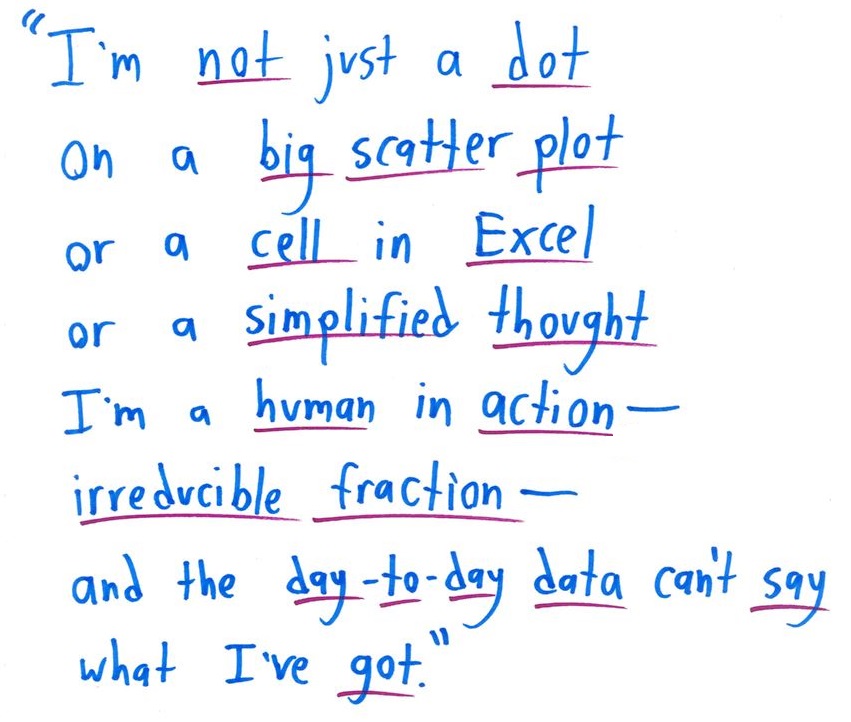 "I'm not just a dot
On a big scatter plot
or a cell in Excel
or a simplified thought
I'm a human in action—
irreducible fraction—
and the day-to-day data can't say
what I've got."